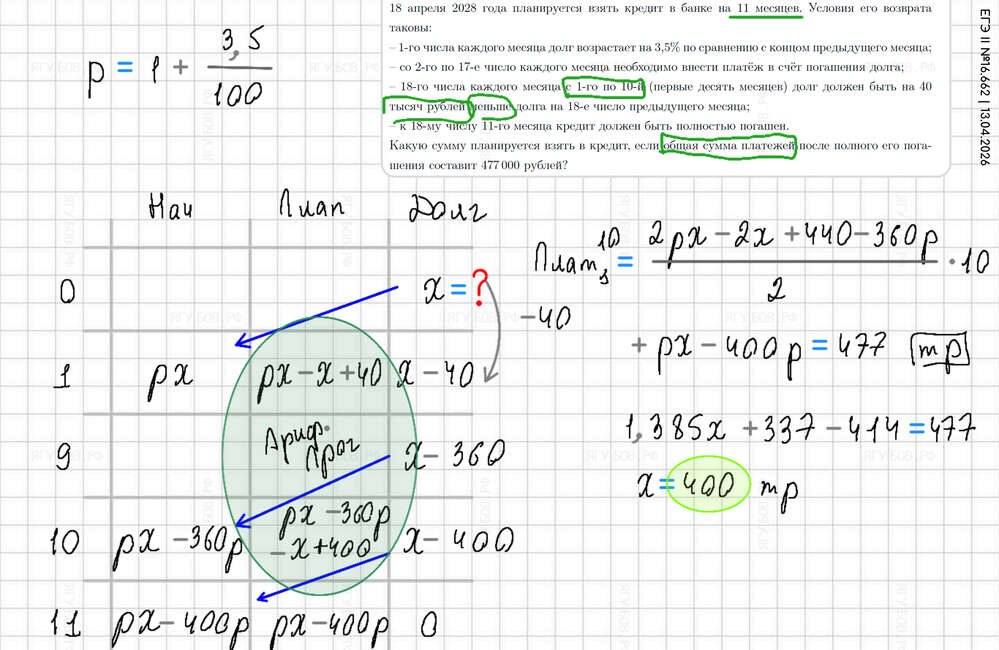 18 апреля 2028 года планируется взять кредит в банке на 11 месяцев. Условия его возврата
таковы:
– 1-го числа каждого месяца долг возрастает на 3,5% по сравнению с концом предыдущего месяца;
– со 2-го по 17-е число каждого месяца необходимо внести платёж в счёт погашения долга;
– 18-го числа каждого месяца с 1-го по 10-й (первые десять месяцев) долг должен быть на 40
тысяч рублей меньше долга на 18-е число предыдущего месяца;
– к 18-му числу 11-го месяца кредит должен быть полностью погашен.
Какую сумму планируется взять в кредит, если общая сумма платежей после полного его пога-
шения составит 477 000 рублей?
ЕГЭ II №16.662 | 13.04.2026
p = 1 + 3,5 / 100
Нач Плат Долг
0 x = ?
-40
1 px px - x + 40 x - 40
Ариф.
прог
9 x - 360
10 px - 360p px - 360p - x + 400 x - 400
11 px - 400p px - 400p 0
10 2px - 2x + 440 - 360p
= · 10
2
+ px - 400p = 477 тр
1,385x + 337 - 414 = 477
x = 400 тр
ЯГУБОВ.РФ